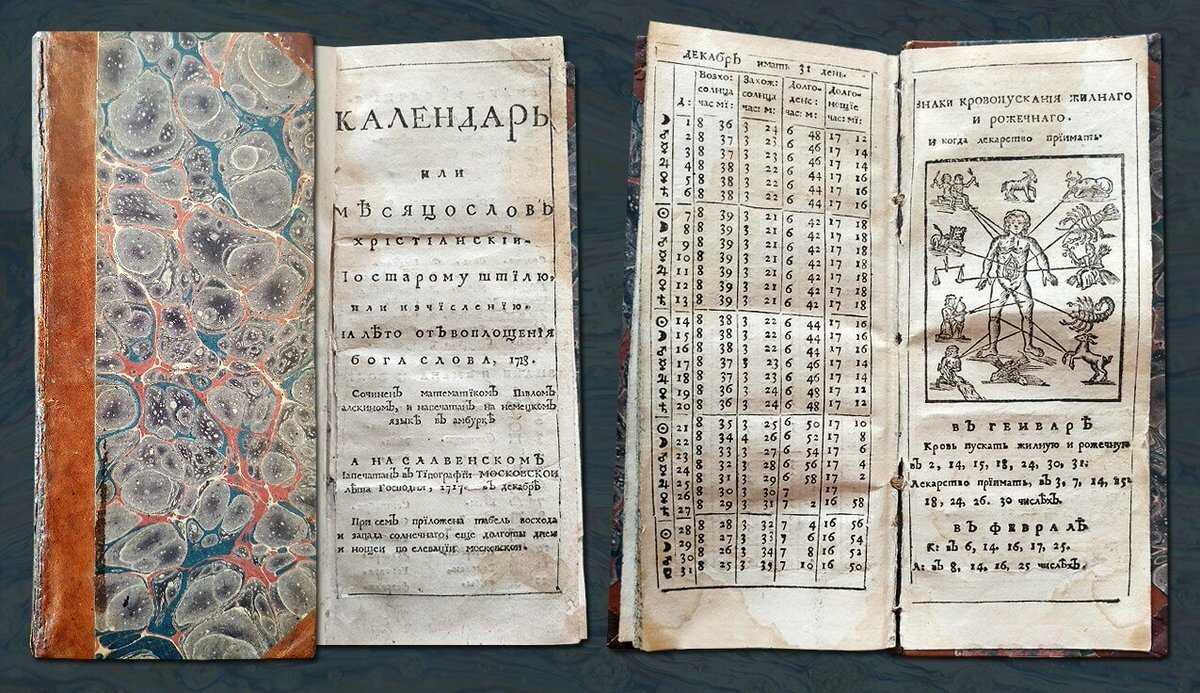 КАЛЕНДАРЬ
или
МѢСЯЦОСЛОВЪ
ХРІСТІАНСКІИ.
По старому штілю,
или изчісленію.
НА ЛѢТО ОТЪ ВОПЛОЩЕНІЯ
БОГА СЛОВА, 1718.
Сочиненъ матемашікомъ Павломъ
алскиномъ, и напечатанъ на немецкомъ
языкѣ въ амбуркѣ
А НА СЛАВЕНСКОМЪ
Напечатанъ въ Тіпографіи МОСКОВСКОИ
лѣта Господня, 1717. въ декабрѣ
При семъ пріложена табель восхода
и запада солнечнаго, еще долготы днем
и нощеи по елевацїи московскои.
ДЕКАБРЬ имать 31 день.
Д: Возхо: солнца час мі: Захож: солнца час: м: Долго- денс: час: м: Долго- нощіе час: мі:
☽ 1 8 36 3 24 6 48 17 12
♂ 2 8 37 3 23 6 46 17 14
☿ 3 8 37 3 23 6 46 17 14
♃ 4 8 38 3 22 6 44 17 16
♀ 5 8 38 3 22 6 44 17 16
♄ 6 8 38 3 22 6 44 17 16
☉ 7 8 39 3 21 6 42 17 18
☽ 8 8 39 3 21 6 42 17 18
♂ 9 8 39 3 21 6 42 17 18
☿ 10 8 39 3 21 6 42 17 18
♃ 11 8 39 3 21 6 42 17 18
♀ 12 8 39 3 21 6 42 17 18
♄ 13 8 39 3 21 6 42 17 18
☉ 14 8 38 3 22 6 44 17 16
☽ 15 8 38 3 22 6 44 17 16
♂ 16 8 38 3 22 6 44 17 16
☿ 17 8 37 3 23 6 46 17 14
♃ 18 8 37 3 23 6 46 17 14
♀ 19 8 36 3 24 6 48 17 12
♄ 20 8 36 3 24 6 48 17 12
☉ 21 8 35 3 25 6 50 17 10
☽ 22 8 34 4 26 6 52 17 8
♂ 23 8 33 3 27 6 54 17 6
☿ 24 8 32 3 28 6 56 17 4
♃ 25 8 31 3 29 6 58 17 2
♀ 26 8 30 3 30 7 17
♄ 27 8 29 3 31 7 2 16 58
☉ 28 8 28 3 32 7 4 16 56
☽ 29 8 27 3 33 7 6 16 54
♂ 30 8 26 3 34 7 8 16 52
31 8 25 3 35 7 10 16 50
ЗНАКИ КРОВОПУСКАНІЯ ЖИЛНАГО
И РОЖЕЧНАГО.
И когда лекарство прїимать.
ВЪ ГЕНВАРѢ
Кровь пускать жилную и рожечную
въ 2, 14, 15, 18, 24, 30, 31.
Лекарство прїимать, въ 3, 7, 14, 15,
18, 24, 26. 30 числѣхъ.
ВЪ ФЕВРАЛѢ
К: въ 6, 14. 16, 17, 25.
Л: въ 8, 14, 16, 25 числѣхъ.